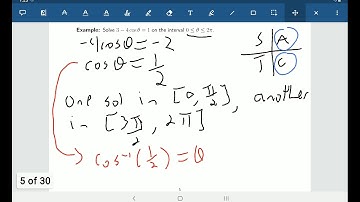 Example: Solve 3 − 4 cos θ = 1 on the interval 0 ≤ θ ≤ 2π.
-4cosθ = -2
cosθ = 1/2
S A
T C
One sol in [0, π/2], another
in [3π/2, 2π]
cos⁻¹(1/2) = θ
5 of 30